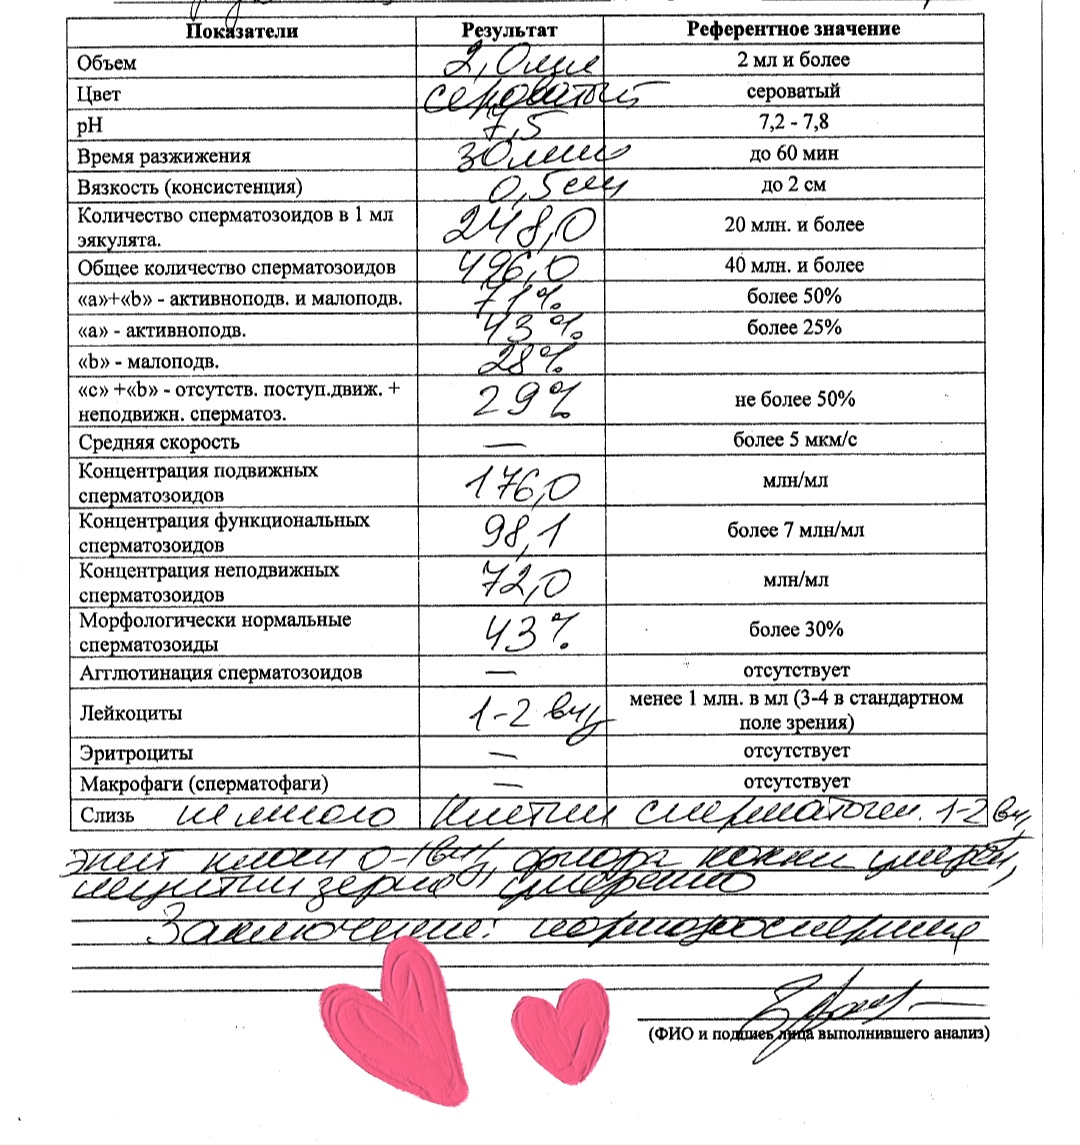 Показатели Результат Референтное значение
Объем 2,0 мл 2 мл и более
Цвет сероватый сероватый
pH 7,5 7,2 - 7,8
Время разжижения 30 мин до 60 мин
Вязкость (консистенция) 0,5 см до 2 см
Количество сперматозоидов в 1 мл
эякулята. 248,0 20 млн. и более
Общее количество сперматозоидов 496,0 40 млн. и более
«a»+«b» - активноподв. и малоподв. 71% более 50%
«a» - активноподв. 43% более 25%
«b» - малоподв. 28%
«c» +«b» - отсутств. поступ.движ. +
неподвижн. сперматоз. 29% не более 50%
Средняя скорость — более 5 мкм/с
Концентрация подвижных
сперматозоидов 176,0 млн/мл
Концентрация функциональных
сперматозоидов 98,1 более 7 млн/мл
Концентрация неподвижных
сперматозоидов 72,0 млн/мл
Морфологически нормальные
сперматозоиды 43% более 30%
Агглютинация сперматозоидов — отсутствует
Лейкоциты 1-2 менее 1 млн. в мл (3-4 в стандартном
поле зрения)
Эритроциты — отсутствует
Макрофаги (сперматофаги) — отсутствует
Слизь немного Клетки сперматоген. 1-2
эпит 0-1 флора кокки умерен,
зерна умеренно
Заключение: нормозоспермия
(ФИО и подпись лица выполнившего анализ)